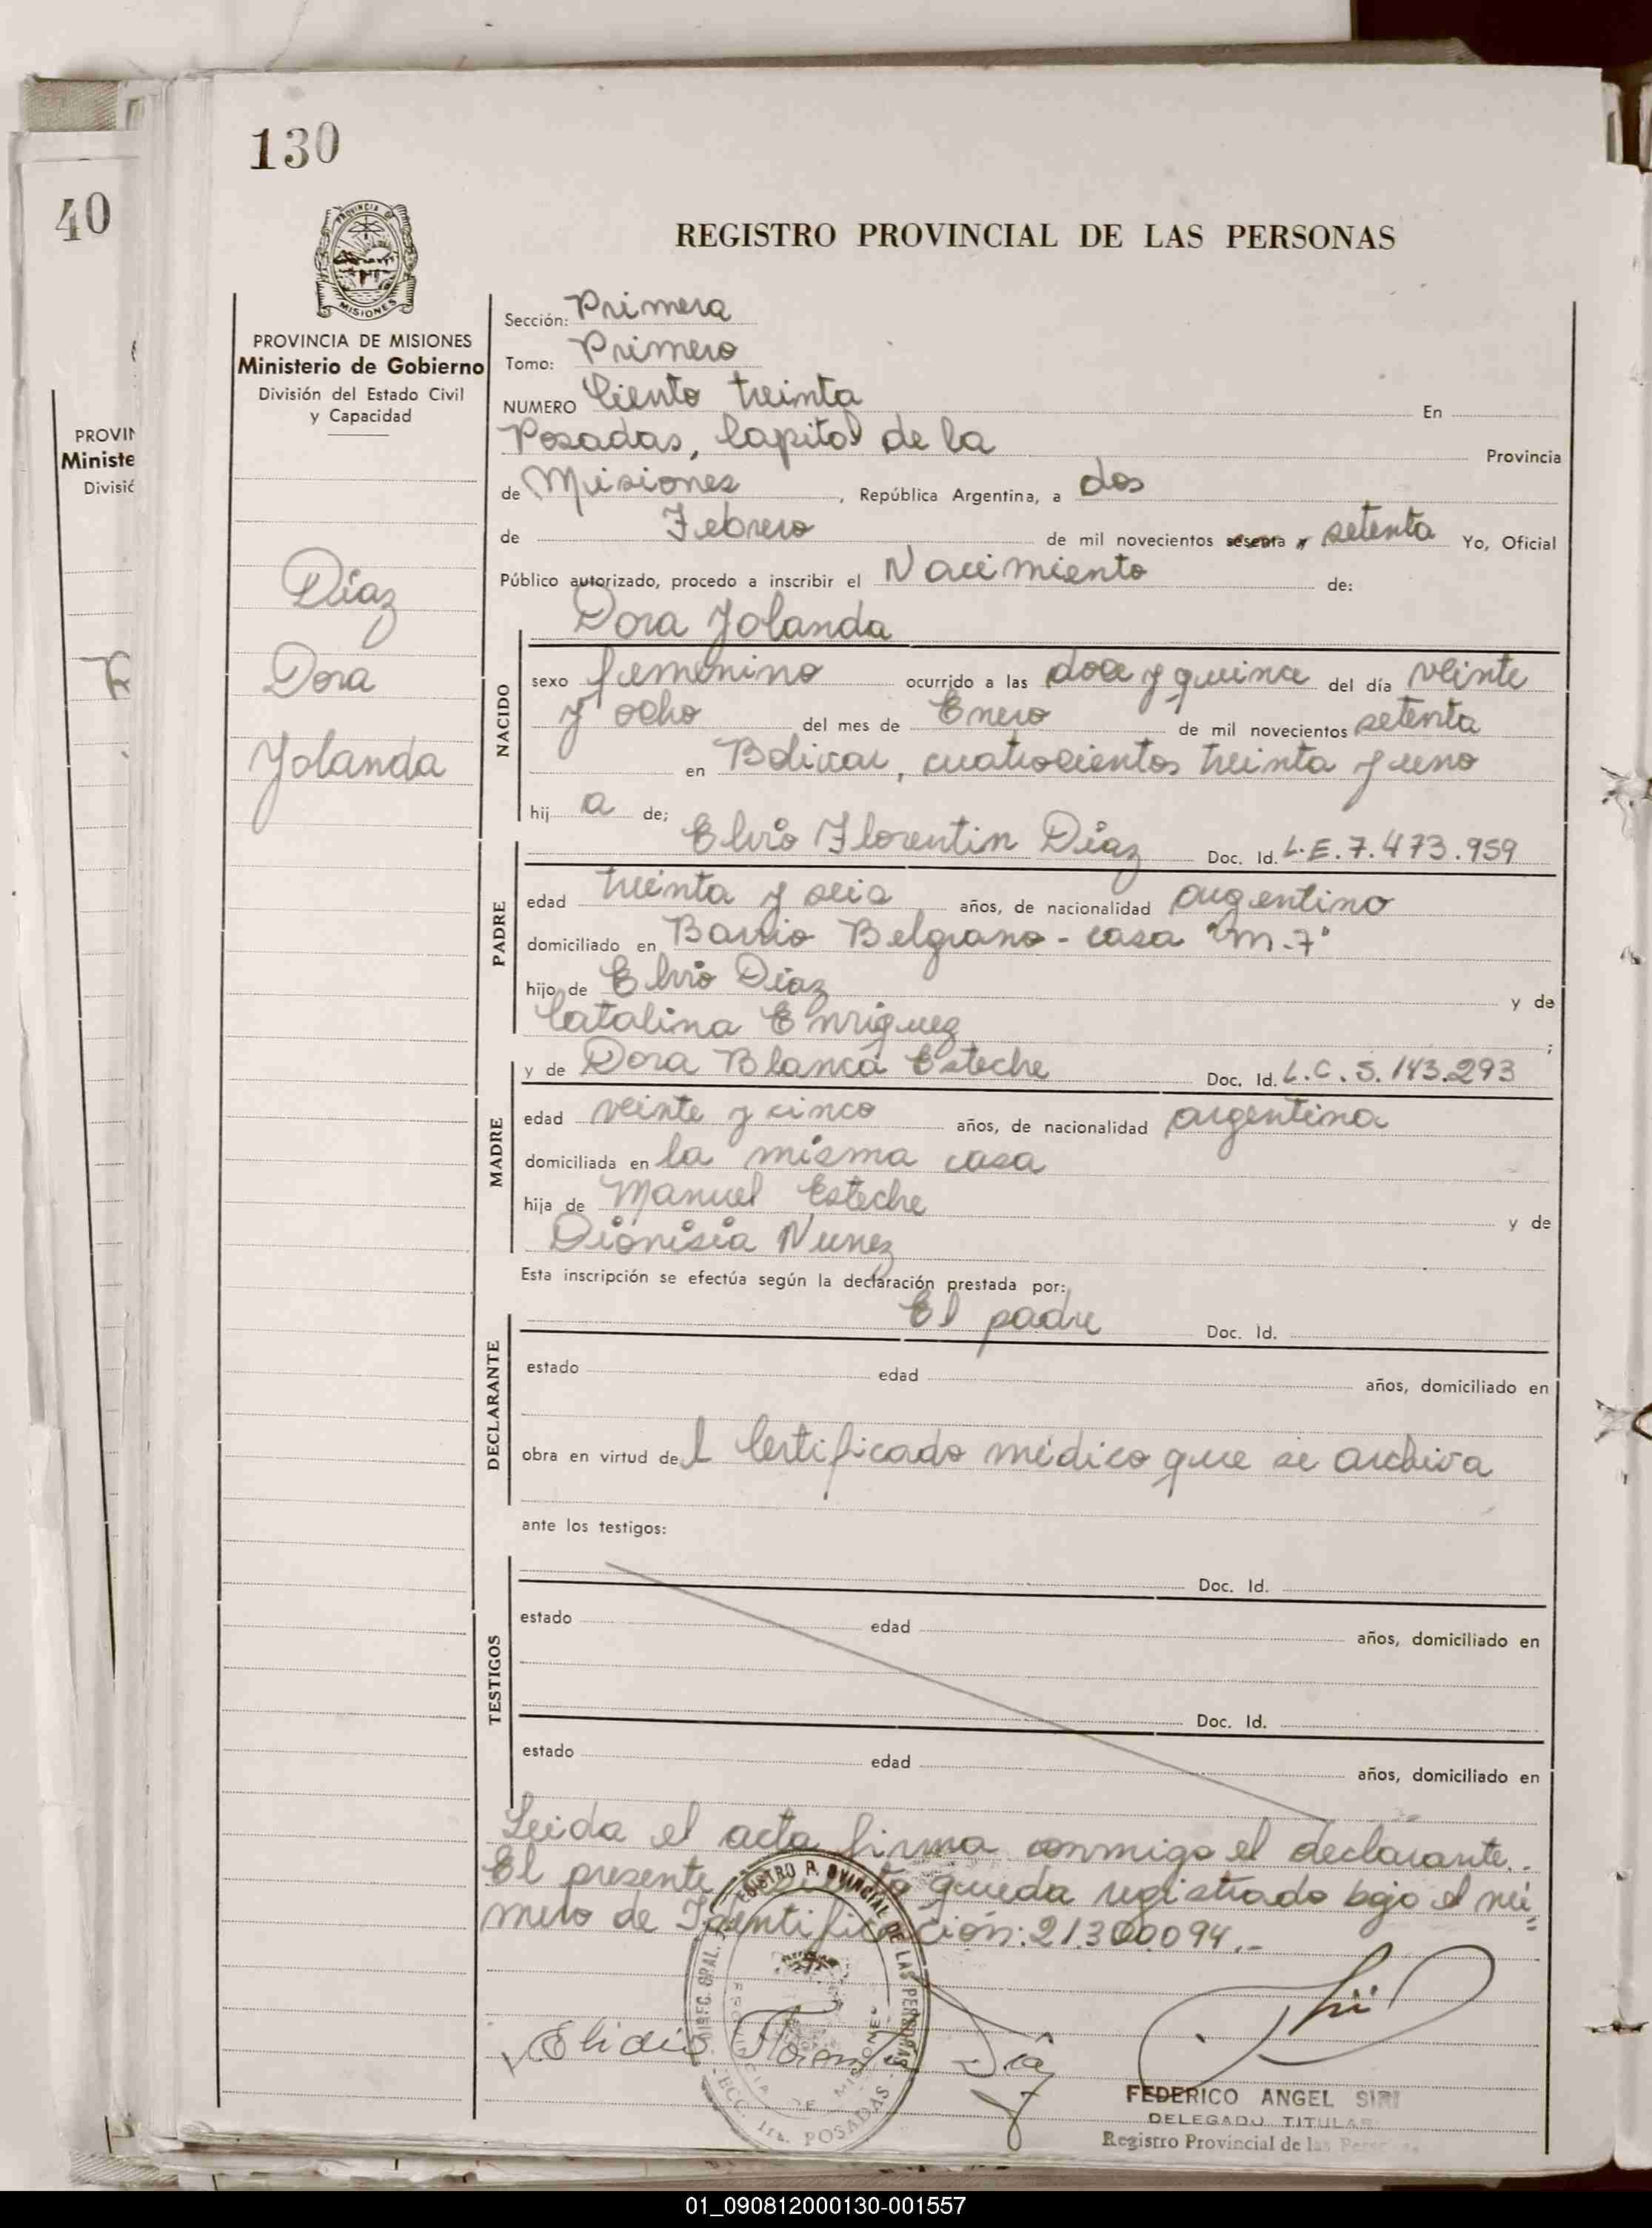 130
40
REGISTRO PROVINCIAL DE LAS PERSONAS
PROVINCIA DE MISIONES
Ministerio de Gobierno
División del Estado Civil
y Capacidad
PROVIN
Ministe
Divisió
Díaz
Dora
Yolanda
Sección: Primera
Tomo: Primero
NUMERO Ciento treinta En
Posadas, Capital de la Provincia
de Misiones, República Argentina, a dos
de Febrero de mil novecientos sesenta y setenta Yo, Oficial
Público autorizado, procedo a inscribir el Nacimiento de:
Dora Yolanda
NACIDO
sexo femenino ocurrido a las doce y quince del día veinte
y ocho del mes de Enero de mil novecientos setenta
en Bolivar, cuatrocientos treinta y uno
hij a de;
Elvio Florentin Díaz Doc. Id. L.E.7.473.959
PADRE
edad treinta y seis años, de nacionalidad argentino
domiciliado en Barrio Belgrano - casa "M-7"
hijo de Elvio Díaz y de
Catalina Enriquez ;
y de Dora Blanca Esteche Doc. Id. L.C.5.143.293
MADRE
edad veinte y cinco años, de nacionalidad argentina
domiciliada en la misma casa
hija de Manuel Esteche y de
Dionisia Nunez
Esta inscripción se efectúa según la declaración prestada por:
El padre Doc. Id.
DECLARANTE
estado edad años, domiciliado en
obra en virtud del Certificado médico que se archiva
ante los testigos:
Doc. Id.
TESTIGOS
estado edad años, domiciliado en
Doc. Id.
estado edad años, domiciliado en
Leida el acta firma conmigo el declarante.
El presente queda registrado bajo el nú=
mero de Identificación: 21.300.094.-
FEDERICO ANGEL SIRI
DELEGADO TITULAR
Registro Provincial de las
01_090812000130-001557